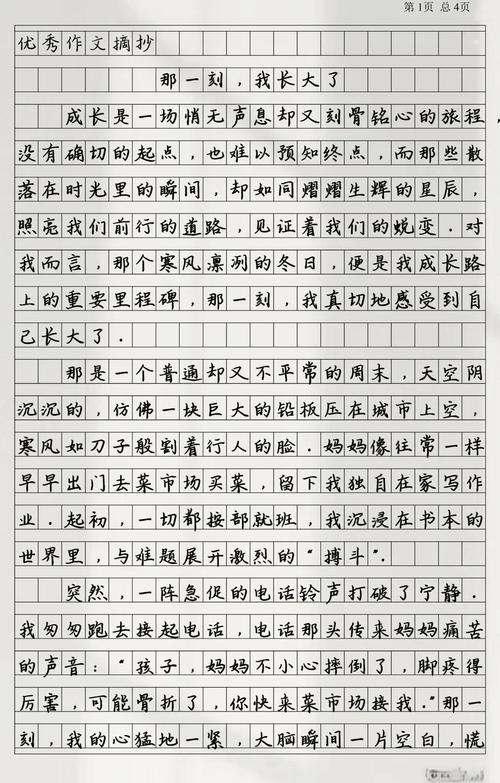 第1页 总4页
优秀作文摘抄
那一刻，我长大了
成长是一场悄无声息却又刻骨铭心的旅程，
没有确切的起点，也难以预知终点，而那些散
落在时光里的瞬间，却如同熠熠生辉的星辰，
照亮我们前行的道路，见证着我们的蜕变．对
我而言，那个寒风凛冽的冬日，便是我成长路
上的重要里程碑，那一刻，我真切地感受到自
己长大了．
那是一个普通却又不平常的周末，天空阴
沉沉的，仿佛一块巨大的铅板压在城市上空，
寒风如刀子般割着行人的脸．妈妈像往常一样
早早出门去菜市场买菜，留下我独自在家写作
业．起初，一切都按部就班，我沉浸在书本的
世界里，与难题展开激烈的“搏斗”．
突然，一阵急促的电话铃声打破了宁静．
我匆匆跑去接起电话，电话那头传来妈妈痛苦
的声音：“孩子，妈妈不小心摔倒了，脚疼得
厉害，可能骨折了，你快来菜市场接我．”那一
刻，我的心猛地一紧，大脑瞬间一片空白，慌